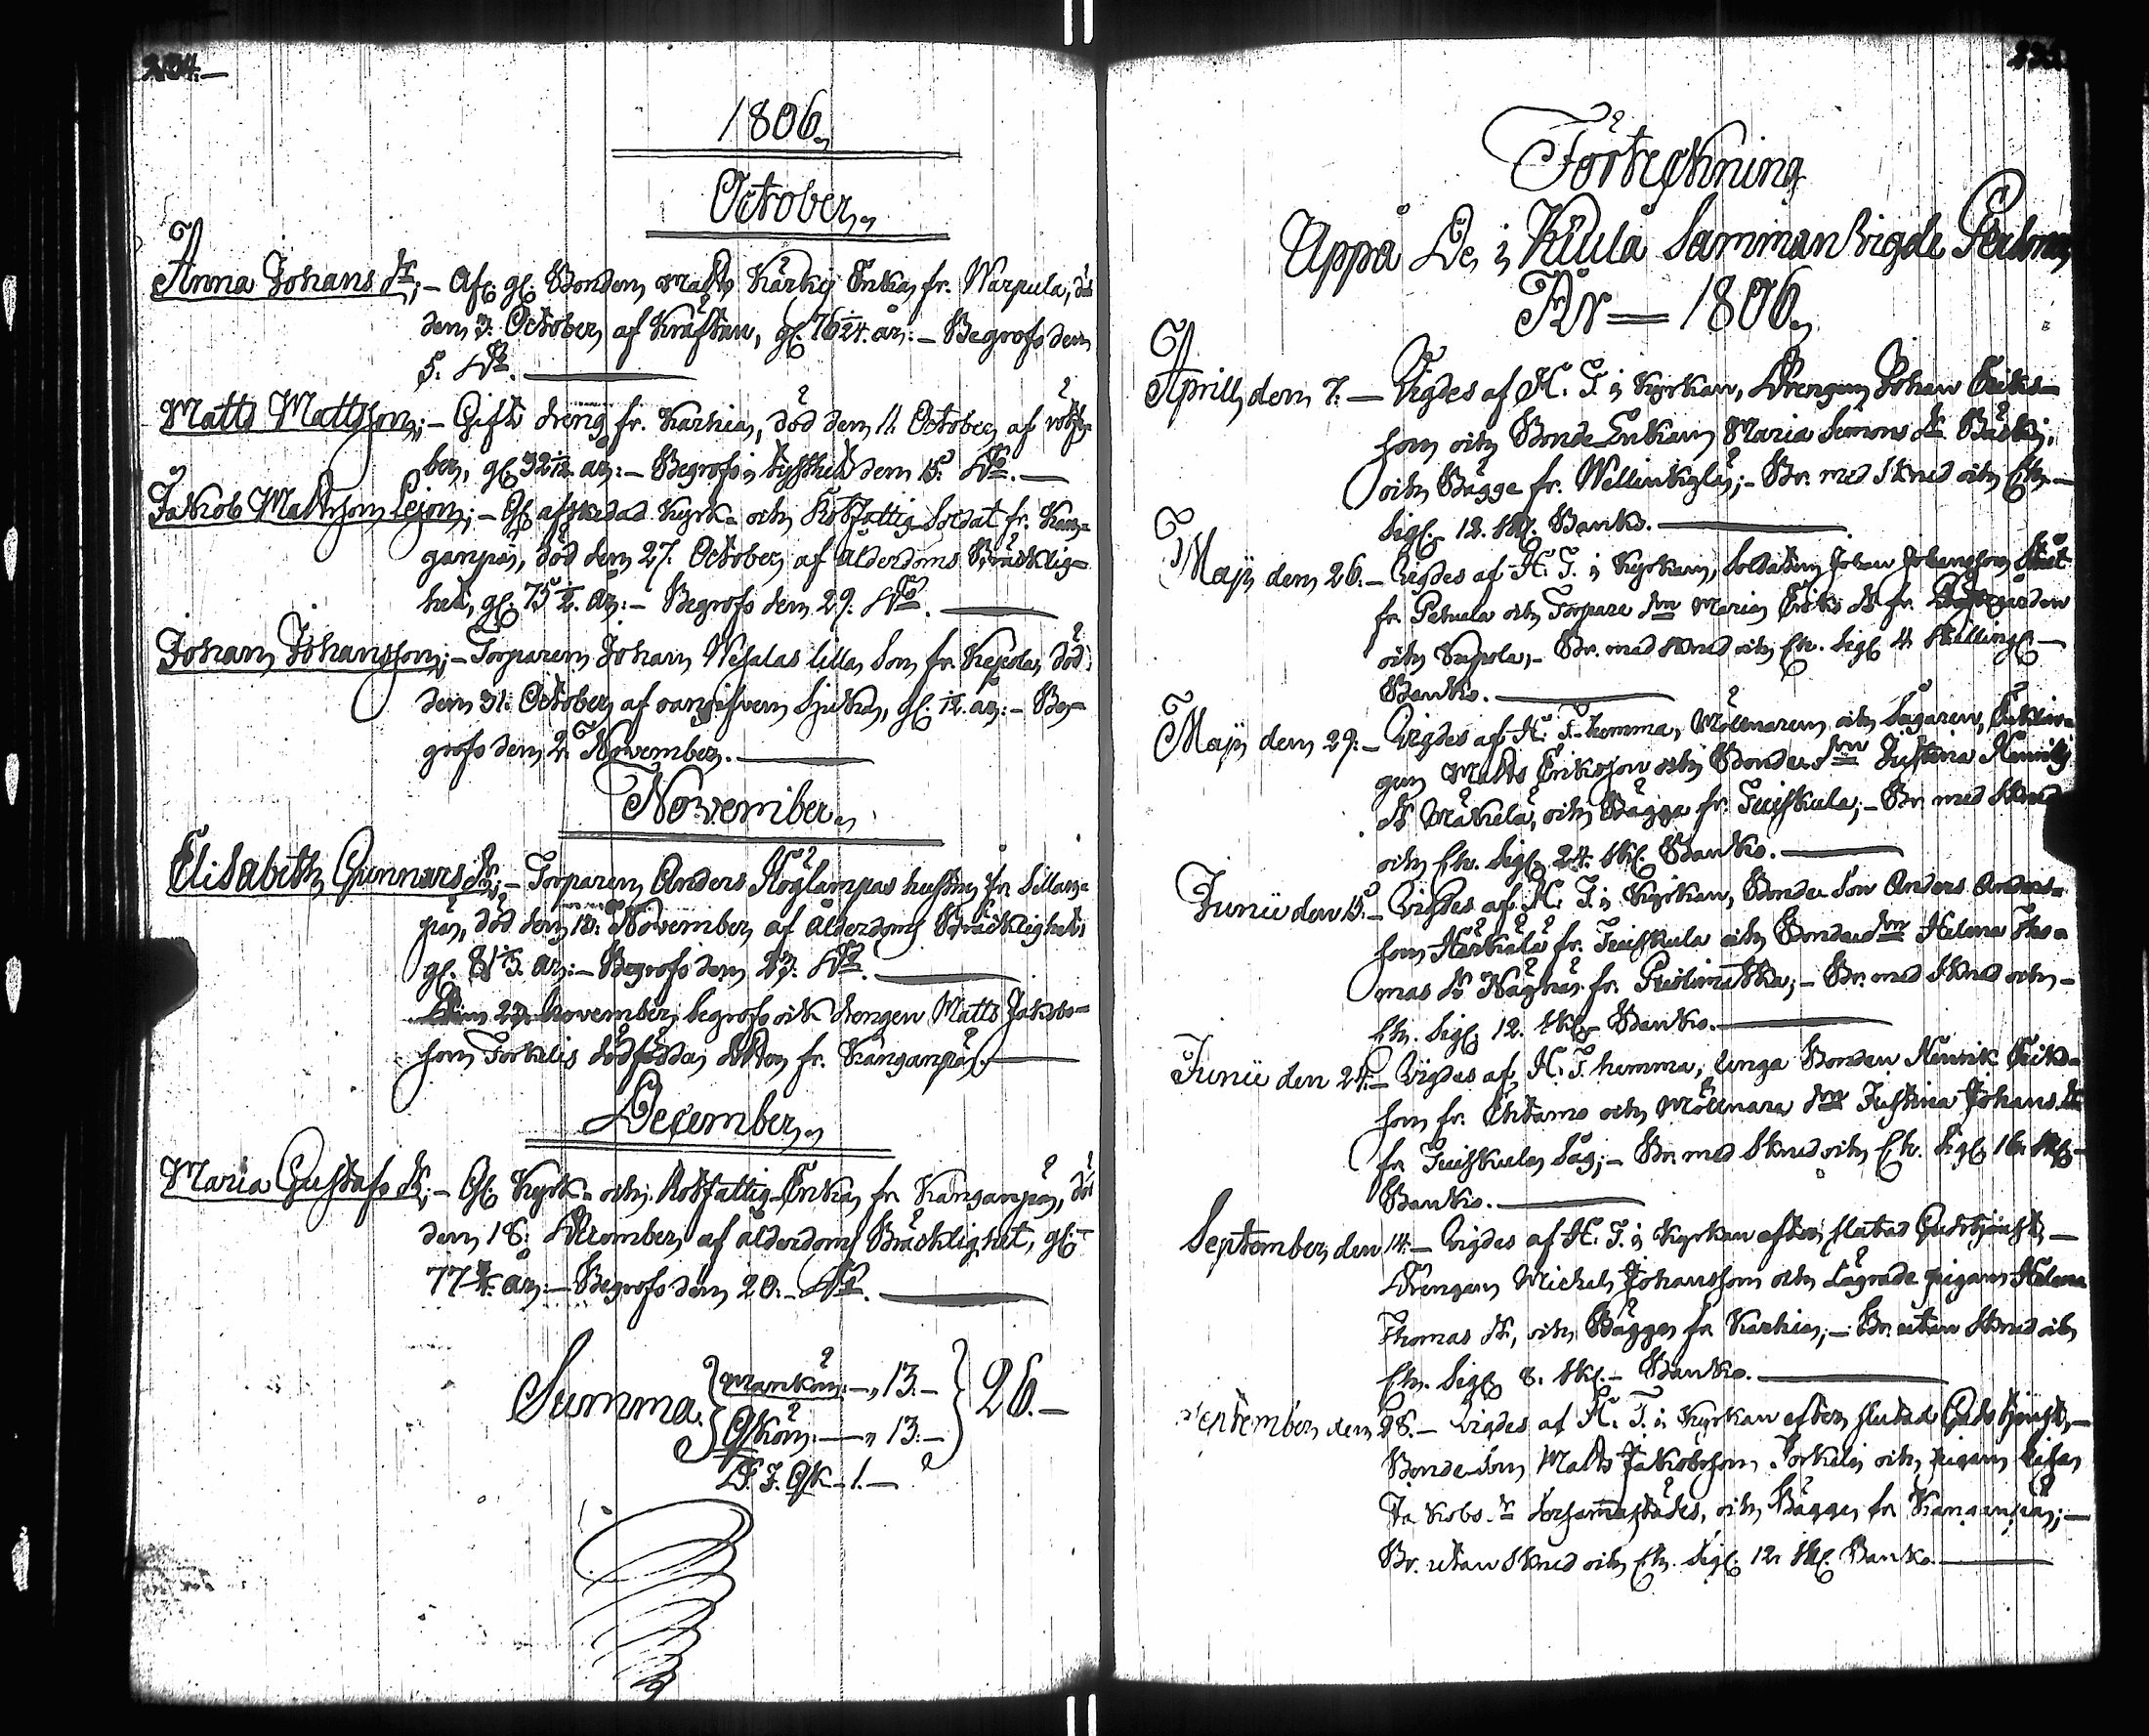 234.—
1806.
October,,
Anna Johans dr;— Afl. gl. Bonden Matts Kärki Enka, fr. Warpula, död
den 3. October, af Kräftan, gl. 76 år:— Begrofs den
5. do.
Matts Mattsson;— Gift dreng fr. Karhia, död den 11. October, af rötfe-
ber, gl. 32 år:— Begrofs i tysthet den 15. do.—
Jakob Mattsson Lejon;— Gl. afskedad Kyrk- och Rotfattig Soldat fr. Kan-
ganpä, död den 27. October af ålderdoms Bräcklig-
het, gl. 75 år:— Begrofs den 29. do.
Johan Johansson;— Torparen Johan Wesalas lilla Son fr. Kepola, död
den 31. October, af oangifven Sjukd., gl. år:— Be-
grofs den 2. November.
November,,
Elisabeth Gunnars dr;— Torparen Anders Röglampas hustru fr. Sillan-
pä, död den 18. November, af ålderdoms Bräcklighet,
gl. år:— Begrofs den 23. do.
November, begrofs ock drengen Matts Jakobs-
son Torkelis dödfödda dotter fr. Kanganpä.
December,,
Maria Gustafs dr;— Gl. Kyrk- och Rotfattig Enka, fr. Kanganpä, död
den 18. December, af ålderdoms Bräcklighet, gl.
77 år:— Begrofs den 20. do.
Summa { Mankön:— ,, 13.— } 26.—
Qkön:— ,, 13.—
D. F. Qk — 1.—
Förteckning
Uppå De i Kiula Sammanvigde Personer
År — 1806.
Aprill, den 7.— Vigdes af H. T. i Kyrkan, Drengen Johan Eriks-
son och Bonde Enkan Maria Simons dr Bäcki,
och Bägge fr. Wellinkylä;— Br. med Skrud och Ch.
Sigl. 12. skl. Banko.
Maji den 26.— Vigdes af H. T. i Kyrkan, Soldaten Johan Johansson
fr. Pehula och Torpare dotren Maria Eriks dr fr.
och Kepola,— Br. med Skrud och Ch. Sigl. 4 Skilling
Banko.
Maji den 29.— Vigdes af H. T. hemma, Möllnaren och Sagaren, Enklin-
gen Matts Eriksson och Bonde dotren Justina Henriks
dr Mäkelä, och Bägge fr. Tuiskula;— Br. med Skrud
och Ch. Sigl. 24. skl. Banko.
Junii den 15.— Vigdes af H. T. i Kyrkan, Bonde Son Anders Anders-
son Härkälä fr. Tuiskula och Bonde dotren Helena Tho-
mas dr Hagnäs fr. ;— Br. med Skrud och
Ch. Sigl. 12. skl. Banko.
Junii den 24.— Vigdes af H. T. hemma, Unga Bonden Henrik Eriks-
son fr. Ehtamo och Möllnare dotren Justina Johans dr
fr Tuiskula Såg;— Br. med Skrud och Ch. Sigl. 16. skl.
Banko.
September, den 14.— Vigdes af H. T. i Kyrkan efter slutad Gudstjenst,—
Drengen Michel Johansson och Lägrade pigan Helena
Thomas dr, och Bägge fr Karhia;— Br. utan Skrud och
Ch. Sigl. 8. skl.— Banko.
September, den 28.— Vigdes af H. T. i Kyrkan efter slutad Gudstjenst,—
Bonde Son Matts Jakobsson Torkeli och pigan Lisa
Jakobs dr dersammastädes, och Bägge fr Kanganpä;—
Br. utan Skrud och Ch. Sigl. 12. skl. Banko.